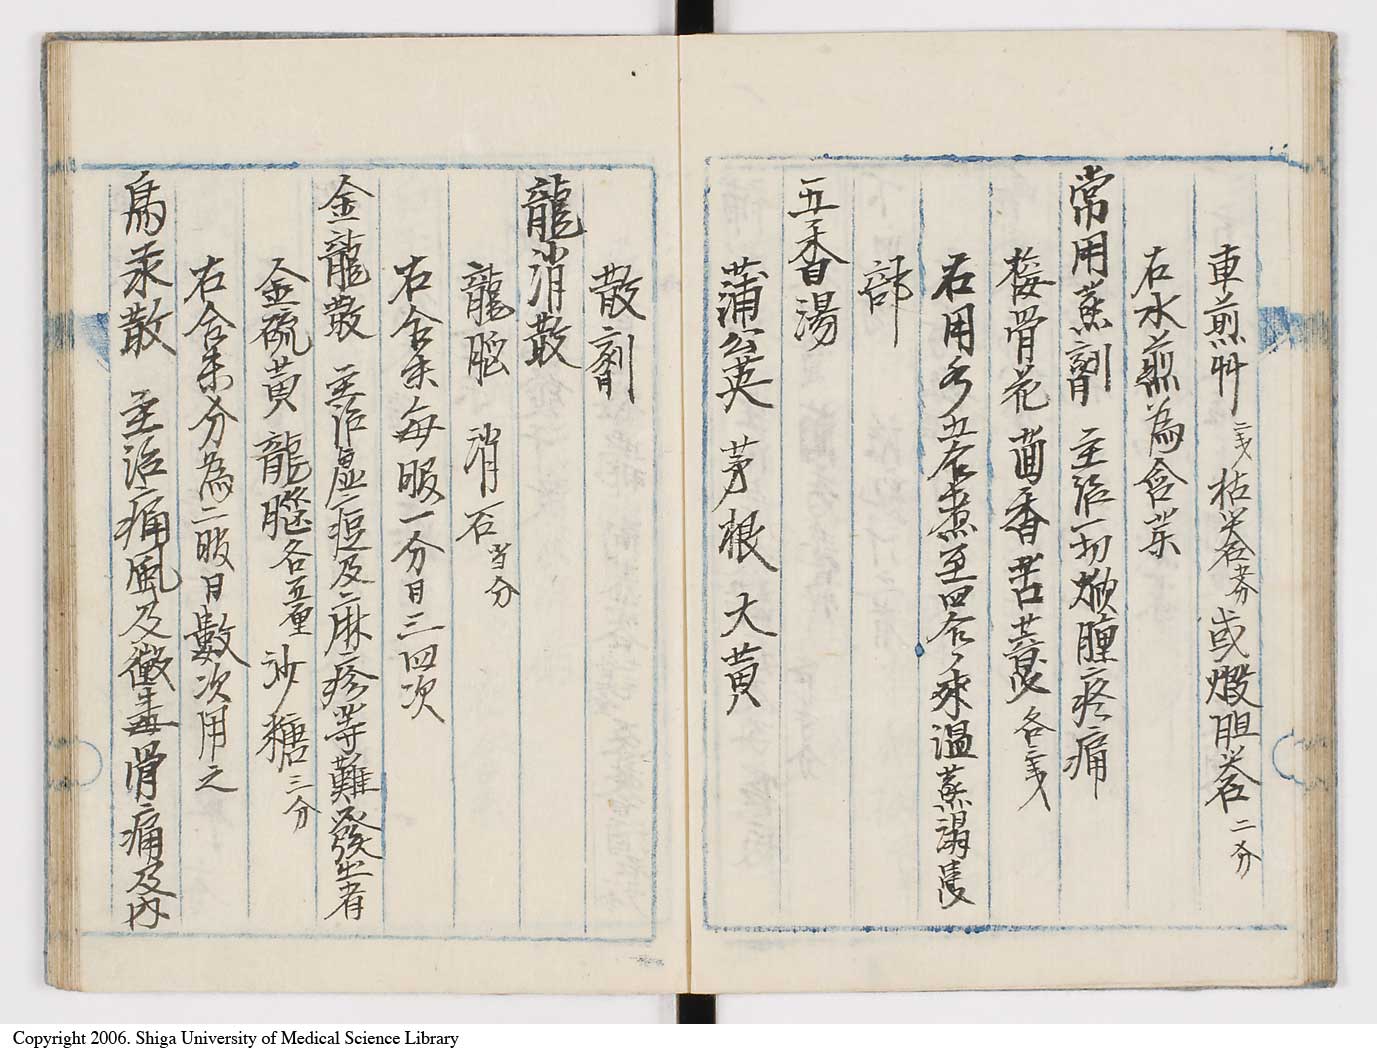 車煎艸二戔 枯礬壱分 或煅胆礬二分
右水煎為含茶
常用蒸劑 主治一切焮腫疼痛
接骨花 茴香 苦薏各三戔
右用水五合煮至四合乘温蒸溻
部
五香湯
蒲公英 茅根 大黄
散劑
龍消散
龍脳 消石当分
右合末每服一分日三四次
金龍散 主治虚痘及麻疹等難發出者
金硫黄 龍腦各五厘 沙糖三分
右合末分為二服日數次用之
烏汞散 主治痛風及黴毒骨痛及内
Copyright 2006. Shiga University of Medical Science Library